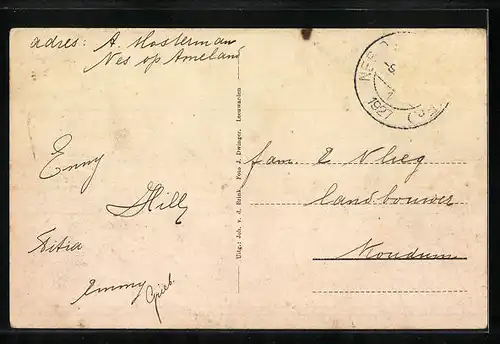 adres: A. Mosterman
Nes op Ameland
Enny
Hill
Aetia
Emmy
Grieb.
Uitg.: Joh. v. d. Brink, Foto J. Dwinger, Leeuwarden
NES
1927
fam. E Vlieg
landbouwer
Koudum